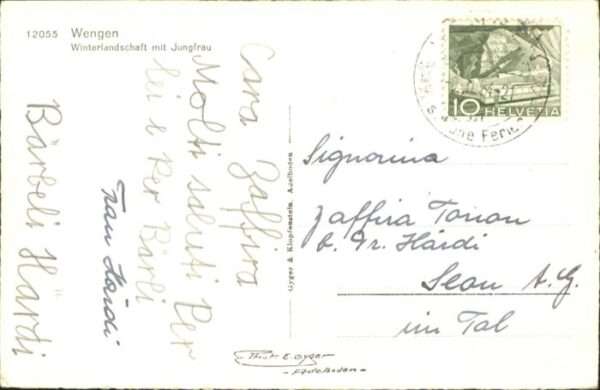 12055 Wengen
Winterlandschaft mit Jungfrau
Cara Zaffira
Molti saluti Per
lei e Per Bärli
Frau Härdi
Bärbeli Härdi
Gyger & Klopfenstein, Adelboden
10 HELVETIA
Signorina
Zaffira Tonon
b. Fr. Härdi
Seon A.G.
im Tal
Phot. E. Gyger
Adelboden